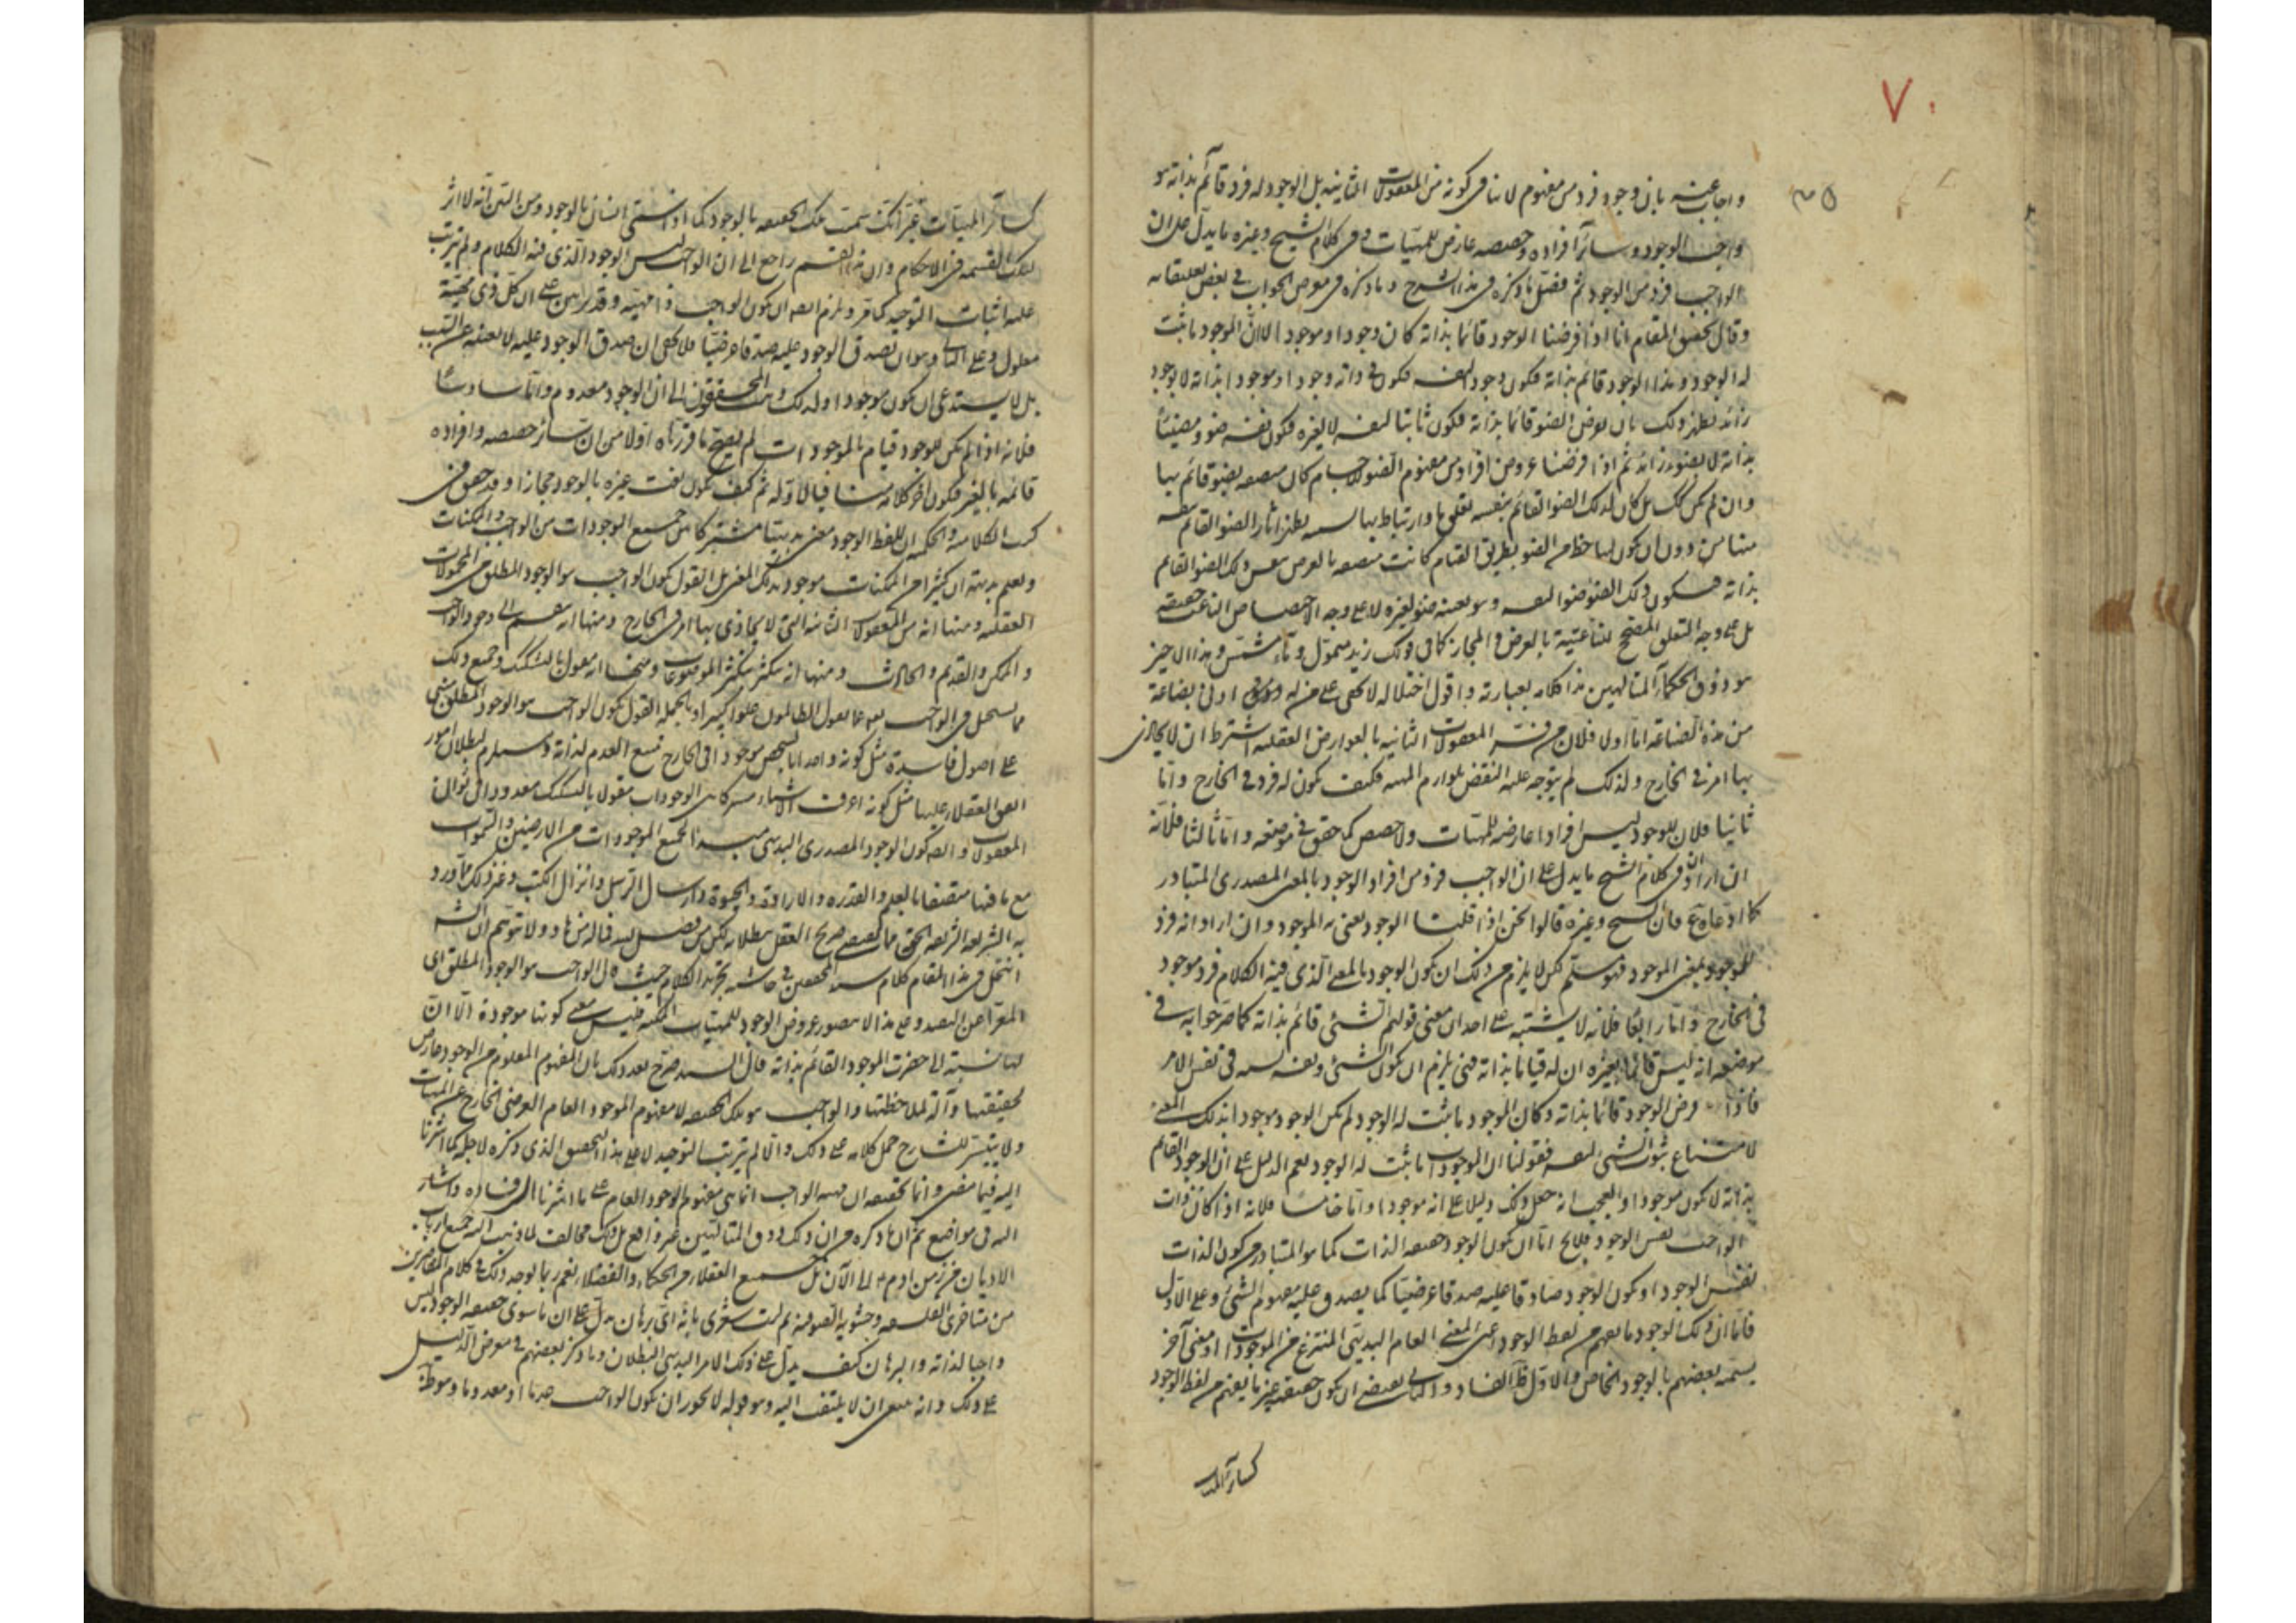 ٧٠
واجاب عنه بان وجود فرد من مفهوم لا ينافى كونه من المعقولات الثانيه بل الوجود له فرد قائم بذاته هو
واجب الوجود وسائر افراده وحصصه عارض للمهيّات وفى كلام الشيخ وغيره ما يدل على ان
الواجب فرد من الوجود ثم فصّل ما ذكره فى هذا الشرح وما ذكره فى معرض الجواب فى بعض تعليقاته
وقال تحقيق المقام انا اذا فرضنا الوجود قائما بذاته كان وجودا وموجودا لانّ الموجود ما ثبت
له الوجود وهذا الوجود قائم بذاته فيكون وجود لنفسه فيكون فى ذاته وجودا وموجودا بذاته لا بوجود
زائد يظهر ذلك بان نفرض الضوء قائما بذاته فيكون ثابتا لنفسه لا لغيره فيكون نفسه ضوء ومضيئا
بذاته لا بضوء زائد ثم اذا فرضنا عروض افراد من مفهوم الضوء للاجسام كان مضيئه بضوء قائم بها
وان لم يكن كك بل كان لذلك الضوء القائم بنفسه تعلق ما وارتباط بها يظهر آثار الضوء القائم بنفسه
منها من دون ان يكون لها حظ من الضوء بطريق القيام كانت مضيئه بالعرض بنفس ذلك الضوء القائم
بذاته فيكون ذلك الضوء ضوءا لنفسه وهو بعينه ضوء لغيره لا على وجه الاختصاص الناعت حقيقة
بل على وجه التعلق المصحح للناعتية بالعرض والمجاز كما فى قولك زيد متموّل وماء مشمّس وهذا الاخير
هو ذوق الحكماء المتالهين هذا كلامه بعبارته واقول اختلاله لا يخفى على من له ادنى بضاعة
من هذه الصناعة امّا اولا فلان من فسّر المعقولات الثانيه بالعوارض العقليه اشترط ان لا يحاذى
بها امر فى الخارج ولذلك لم يتوجه عليه النقض بلوازم المهيه فكيف يكون له فرد فى الخارج وامّا
ثانيا فلان للوجود ليس افرادا عارضه للمهيّات ولا حصص كما حقق فى موضعه وامّا ثالثا فلانّه
ان اراد ان فى كلام الشيخ ما يدل على ان الواجب فرد من افراد الوجود بالمعنى المصدرى المتبادر
كما ادّعاه فمنع فان الشيخ وغيره قالوا نحن اذا قلنا الوجود نعنى به الموجود وان اراد انه فرد
للوجود بمعنى الموجود فهو مسلّم لكن لا يلزم من ذلك ان يكون الوجود بالمعنى الذى فيه الكلام فرد موجود
فى الخارج وامّا رابعا فلانه لا يشتبه على احد ان معنى قولهم الشئ قائم بذاته كما صرّحوا به فى
موضعه انه ليس قائما بغيره ان له قياما بذاته حتى يلزم ان يكون الشئ ونفسه فى نفس الامر
فاذا فرض الوجود قائما بذاته وكان الموجود ما ثبت له الوجود لم يكن الوجود موجودا بذلك المعنى
لامتناع ثبوت الشئ لنفسه فقولنا ان الموجود ما ثبت له الوجود نعم الدليل على ان الوجود القائم
بذاته لا يكون موجودا والعجب انه جعل ذلك دليلا على انه موجود وامّا خامسا فلانه اذا كان ذات
الواجب نفس الوجود فلا يخ امّا ان يكون الوجود حقيقه الذات كما هو المتبادر من كون الذات
نفس الوجود او يكون الوجود صادقا عليه صدقا عرضيّا كما يصدق عليه مفهوم الشئ وعلى الاوّل
فامّا ان ذلك الوجود ما يفهم من لفظ الوجود اعنى المعنى العام البديهى المنتزع من الموجودات او معنى آخر
يسمّيه بعضهم بالوجود الخاص والاوّل ظاهر الفساد والثانى يقتضى ان يكون حقيقته غير ما يفهم من لفظ الوجود
كسائر المهيات
كسائر المهيّات غير انك سمّيت تلك الحقيقه بالوجود كما اذا سمّى انسان بالوجود ومن البيّن انّه لا اثر
لتلك القسمه فى الاحكام وان هذا القسم راجع الى ان الواجب ليس الوجود الذى فيه الكلام ولم يترتب
عليه اثبات التوحيد كما مرّ ويلزم ايضا ان يكون الواجب ذا مهيّه وقد برهن على ان كل ذى مهيّة
معلول وعلى الثانى وهو ان يصدق الوجود عليه صدقا عرضيّا فلا يخفى ان صدق الوجود عليه لا يغنيه عن السبب
بل لا يستدعى ان يكون موجودا ولذلك ذهب المحققون الى ان الوجود معدوم وامّا سادسا
فلانه اذا لم يكن للوجود قيام بالموجودات لم يصح ما قرّره اولا من ان سائر حصصه وافراده
قائمه بالغير فيكون آخر كلامه منافيا لاوّله ثم كيف يكون نعت غيره بالوجود مجازا وقد حقق فى
كتب الكلاميه والحكميه ان للفظ الوجود معنى بديهيّا مشتركا بين جميع الموجودات من الواجب والممكنات
ونعلم بديهة ان كثيرا من الممكنات موجود بذلك المعنى بل القول بكون الواجب هو الوجود المطلق من المحمولات
العقليه ومنها انه من المعقولات الثانيه التى لا يحاذى بها امر فى الخارج ومنها انه ينقسم الى وجود الواجب
والممكن والقديم والحادث ومنها انه يتكثر بتكثر الموضوعات ومنها انه مقول بالتشكيك وجميع ذلك
مما يستحيل فى الواجب تعالى عما يقول الظالمون علوا كبيرا وبالجمله القول بكون الواجب هو الوجود المطلق مبنى
على اصول فاسدة مثل كونه واحدا بالشخص موجودا فى الخارج ممتنع العدم لذاته ومستلزم لبطلان امور
اتفق العقلاء عليها مثل كونه اعرف الاشياء مشتركا بين الوجودات مقولا بالتشكيك معدودا فى ثوانى
المعقولات وايضا يكون الوجود المصدرى البديهى مبدءا لجميع الموجودات من الارضين والسموات
مع ما فيها متصفا بالعلم والقدره والارادة والحيوة وارسال الرسل وانزال الكتب وغير ذلك ممّا ورد
به الشريعه الشريفه الحقه مما يقتضى صريح العقل ببطلانه لكن من يضلل الله فما له من هاد ولا تتوهم ان
انتحل فى هذا المقام كلام سيد المحققين فى حاشيه تجريد الكلام حيث قال الواجب هو الوجود المطلق اى
المعرّا عن التقييد وعلى هذا لا يتصور عروض الوجود للمهيّات الممكنه فليس معنى كونها موجودة الّا انّ
لها نسبة الى حضرت الوجود القائم بذاته فان السيد صرّح بعد ذلك بان المفهوم المعلوم من الوجود عارض
لحقيقتها وآلة لملاحظتها والواجب هو تلك الحقيقه لا مفهوم الموجود العام العرضى الخارج عن المهيات
ولا يتيسّر للشارح حمل كلامه على ذلك والّا لم يترتب التوحيد لا على هذا التحقيق الذى ذكره لاجله كما اشرنا
اليه فيما مضى وانما تحقيقه ان مهيه الواجب انما هى مفهوم الوجود العام على ما اشرنا الى فساده واشار
اليه فى مواضع ثم ان ما ذكره من ان ذلك ذوق المتالّهين غير واقع بل ذلك مخالف لما ذهب اليه جميع ارباب
الاديان من زمن آدم الى الآن بل جميع العقلاء من الحكماء والفضلاء نعم ربما يوجد ذلك فى كلام القاصرين
من متاخرى الفلسفه وحشويه الصوفيه ثم ليت شعرى بانّه اىّ برهان يدلّ على ان ما سوى حقيقه الوجود ليس
واجبا لذاته والبرهان كيف يدلّ على ذلك الامر البديهى البطلان وما ذكر بعضهم فى معرض الدليل
على ذلك وانه ينبغى ان لا يلتفت اليه وهو قوله لا يجوز ان يكون الواجب عدما او معدوما وهو ظاهر